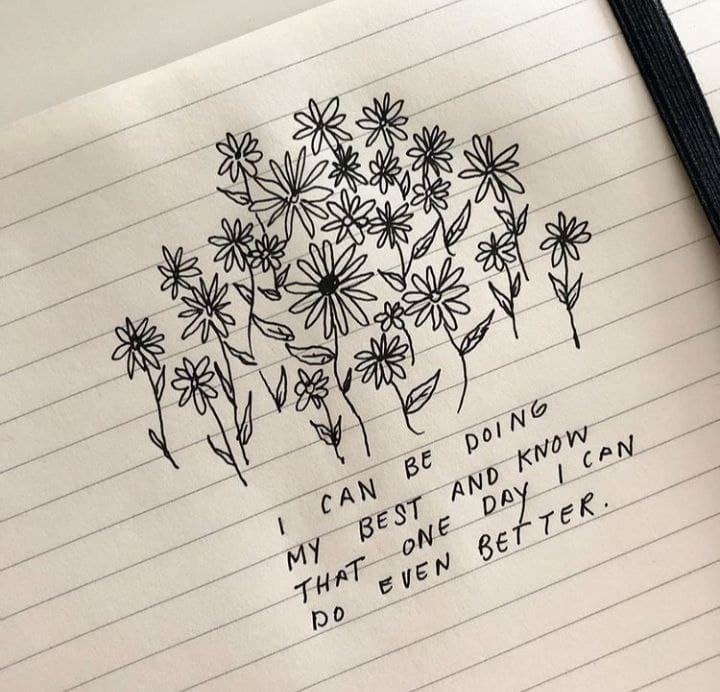 I CAN BE DOING
MY BEST AND KNOW
THAT ONE DAY I CAN
DO EVEN BETTER.